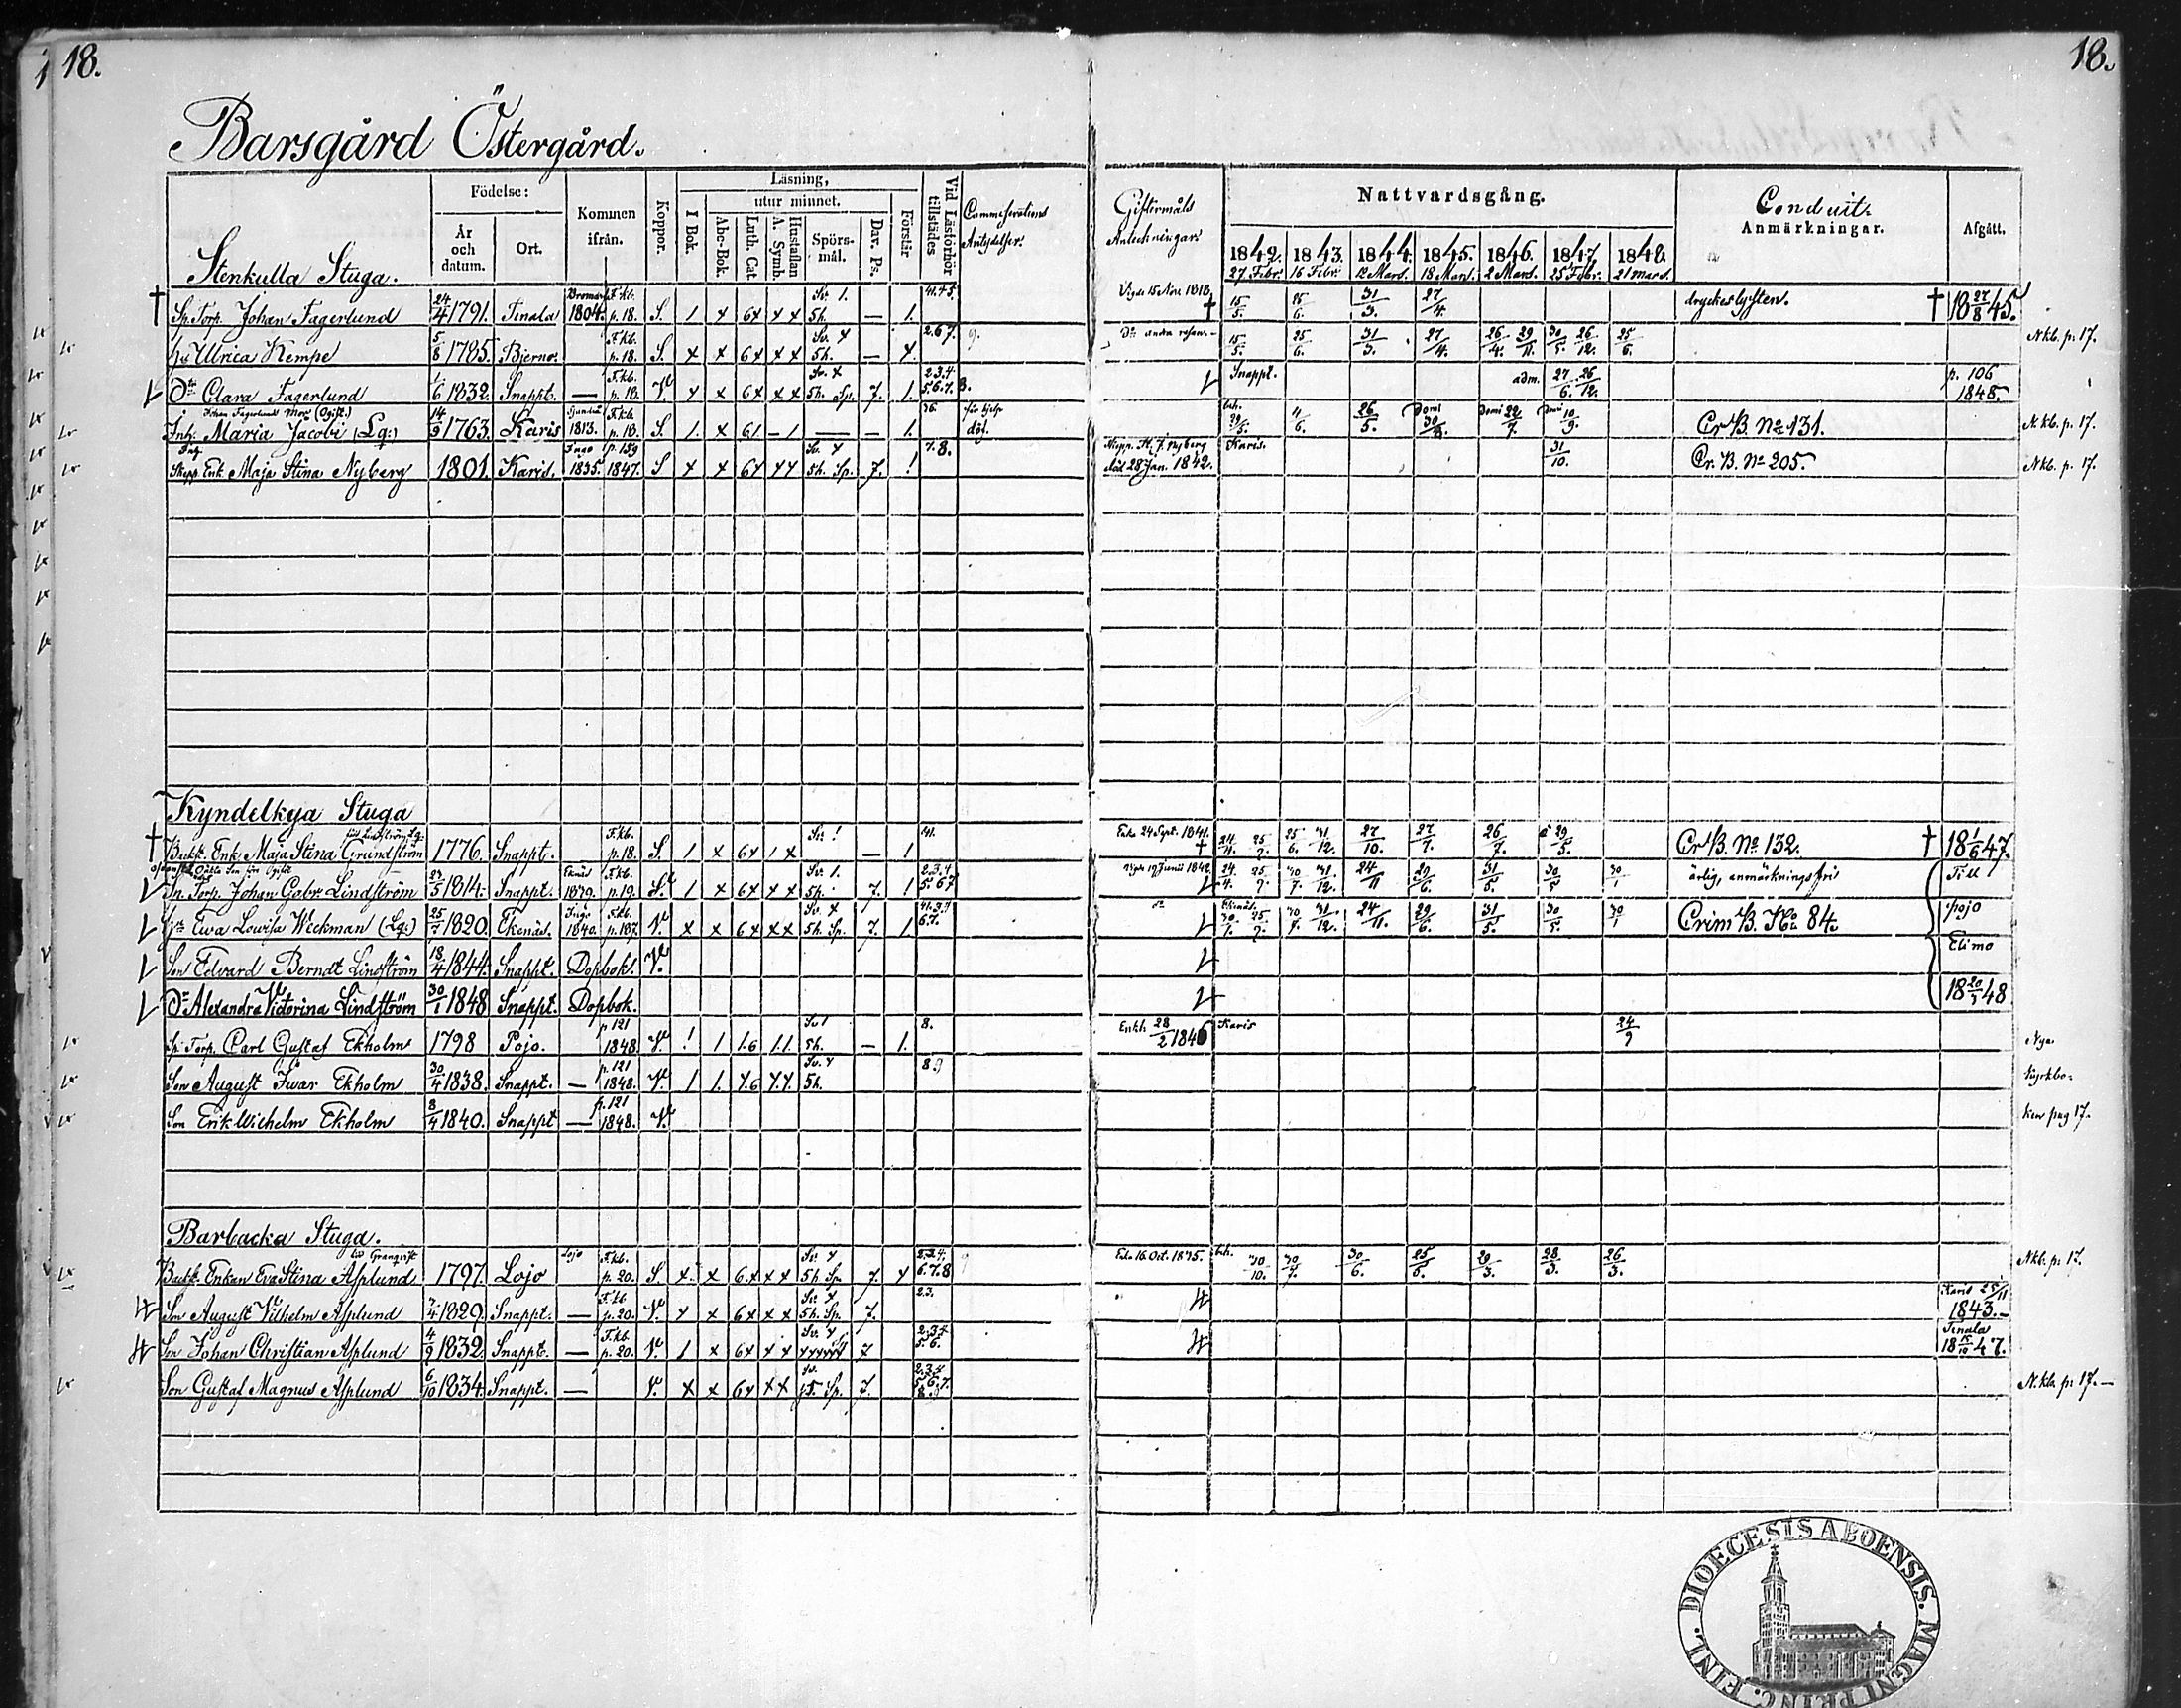 18.
18.
Barsgård Östergård.
Födelse: Kommen ifrån. Koppor. Läsning, utur minnet. Vid Läsförhör tillstädes
År och datum. Ort. I Bok. Abc-Bok. Luth. Cat. Hustaflan A. Symb. Spörsmål. Dav. Ps. Förstår
Giftermåls Anteckningar Nattvardsgång. Conduit. Anmärkningar. Afgått.
1842. 1843. 1844. 1845. 1846. 1847. 1848.
27 Febr. 16 Febr. 12 Mars. 18 Mars. 2 Mars. 25 Febr. 21 Mars.
Stenkulla Stuga.
† Sp. Torp. Johan Fagerlund 24/4 1791. Tenala 1804. F.kb. p. 18. S. 1 x 6x x x Sv. 1. 5h. — 1. 41.45. Vigde 15 Nov. 1818. † 15/5. 25/6. 31/3. 27/4. dryckeslysten. † 18 27/8 45.
Hu Ulrica Kempe 5/8 1785. Bjerno. F.kb. p. 18. S. x x 6x x x Sv. x 5h. — x. 2.6.7. 15/5. 25/6. 31/3. 27/4. 26/4. 29/11. 30/5. 26/12. 25/6. N.kb. p. 17.
Dr Clara Fagerlund 1/6 1832. Snappt. — F.kb. p. 18. V. x x 6x x x Sv. x 5h. Sp. 7. 1. 2.3.4 5.6.7. 8. Snappt. adm. 27/6. 26/12. p. 106 1848.
Johan Fagerlunds Mor (Ogift.)
Inh. Maria Jacobi (Lq:) 14/9 1763. Karis 1813. F.kb. p. 18. S. 1. x 61 – 1 — — 1. 11/6. 26/5. 30/8. 22/7. 10/9. Cr. B. No 131. N.kb. p. 17.
Skepp. Enk. Maja Stina Nyberg 1801. Karis. Ingo 1835. p. 159 1847. S x x 6x x x Sv. x 5h. Sp. 7. ! 7.8. död 28 Jan. 1842. Karis. 31/10. Cr. B. No 205. N.kb. p. 17.
Kyndelkya Stuga
född Lindström Lq:
† Enk. Maja Stina Grundström 1776. Snappt. F.kb. p. 18. S. 1 x 6x 1 x Sv. ! — 1 41. Enka 24 Sept. 1841. † 25/6. 31/12. 27/10. 27/7. 26/7. 29/5. Cr. B. No. 132. † 18 1/6 47.
Torp. Johan Gabr. Lindström 27/5 1814. Snappt. Ekenäs 1839. F.kb. p. 19. 1 x 6x x x Sv. 1. 5h. 7. 1 2.3.4 5.6.7 Vigde 19 Junii 1842. 24/11 29/6. 31/5. 30/5 30/1 ärlig, anmärkningsfri Till
Hu Ewa Lowisa Weckman (Lq:) 25/7 1820. Ekenäs. Ingo 1840. F.kb. p. 187. V. x x 6x x x Sv. x 5h. Sp. 7. 1 6.7. Ekenäs. 31/12. 24/11. 29/6. 31/5. 30/5. 30/1 Crim B. No 84. pojo
Son Edvard Berndt Lindström 18/4 1844. Snappt. Dopbok. V. Elimo
Dr Alexandra Victorina Lindström 30/1 1848 Snappt. Dopbok. 18 20/3 48
Sp. Torp. Carl Gustaf Ekholm 1798 Pojo. p. 121 1848. V. ! 1 1.6 1.1. Sv 1 5h. — 1. 8. Enkl. 28/2 1846 Karis 24/9 Nya
Son August Iwar Ekholm 30/4 1838. Snappt. — p. 121 1848. V. 1 1. 7.6 7.7. Sv. x 5h. 8.9 Kyrkbo-
Son Erik Wilhelm Ekholm 8/4 1840. Snappt — p. 121 1848. V. ken pag 17.
Barbacka Stuga.
Enkan Eva Stina Asplund 1797. Lojo Lojo F.kb. p. 20. S. x. x 6.x x x Sv. x 5h. Sp. 7. x 2.3.4. 6.7.8 Enka 16 Oct. 1835. 30/10. 30/7. 30/6. 25/5. 29/3. 28/3. 26/3. N.kb. p. 17.
Son August Vilhelm Asplund 1829. Snappt. — F.kb p. 20. V. x x 6x x x Sv. x 5h. Sp. 7. 2.3. Karis 25/11 1843. –
Son Johan Christian Asplund 4/9 1832. Snappt. — F.kb p. 20. V. 1 x 6x x x Sv. x 7 2.3.4 5.6. Tenala 1847.
Son Gustaf Magnus Asplund 6/10 1834. Snappt. — V. x x 6x x x Sv. Sp. 7. 2.3.4 5.6.7. 8.9 N.kb. p. 17. —
DIOECESIS ABOENSIS. MAGNI PRINC. FINL.